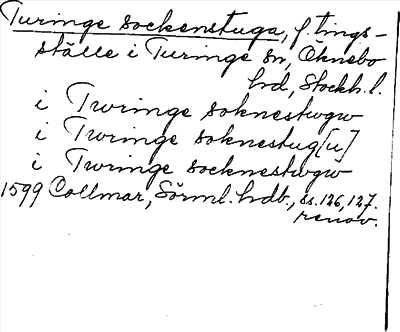 Turinge sockenstuga, f. tings-
ställe i Turinge sn, Öknebo
hd, Stockh. l.
i Twringe soknestwgw
i Twringe soknestug[u]
i Twringe socknestwgw
1599 Collmar, Sörml. hdb., ss. 126, 127.
renov.